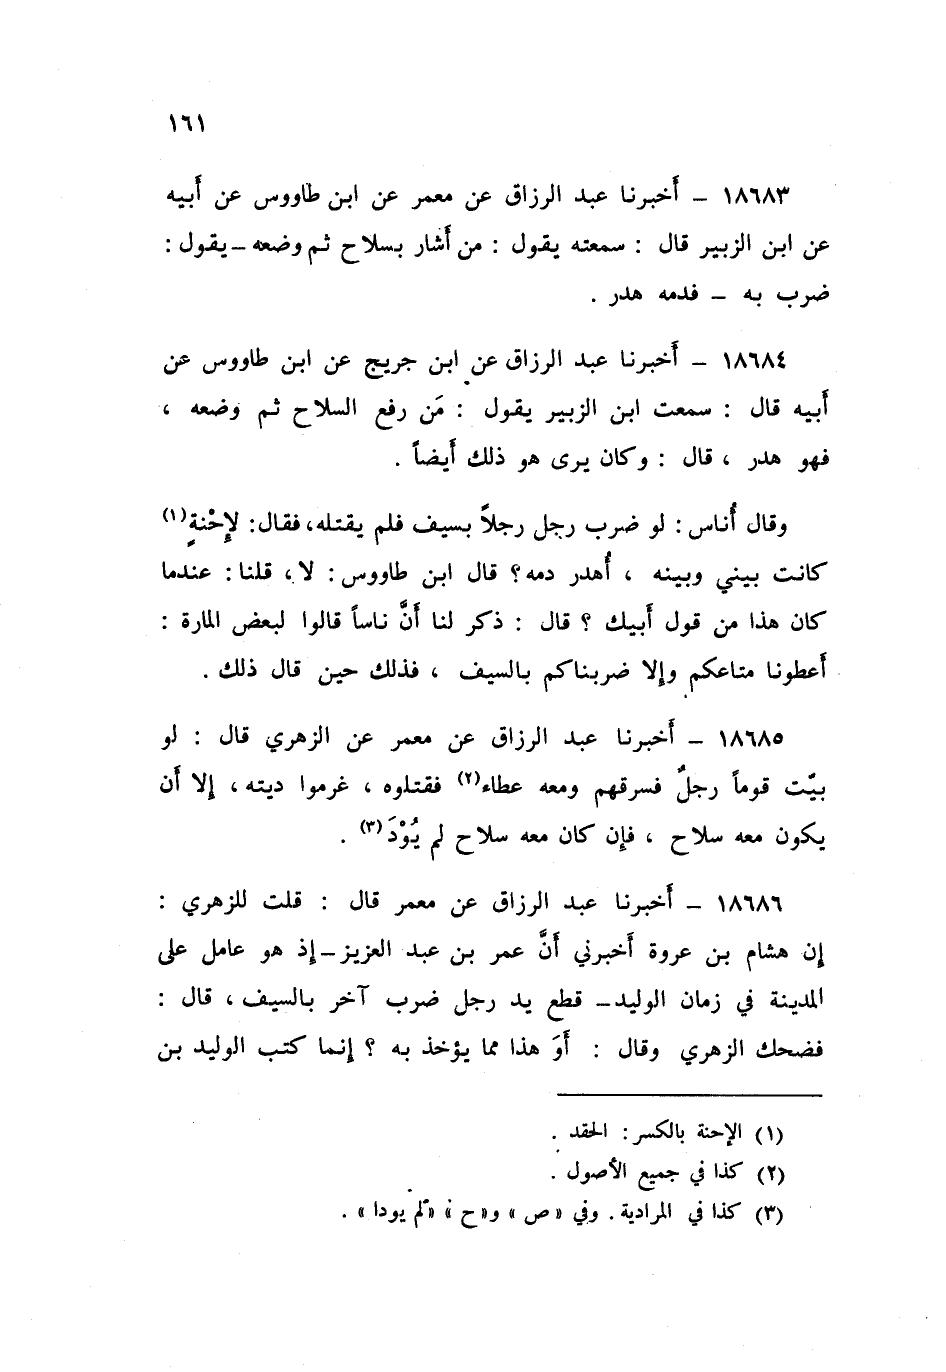 ١٦١
١٨٦٨٣ – أَخبرنا عبد الرزاق عن معمر عن ابن طاووس عن أَبيه
عن ابن الزبير قال : سمعته يقول : من أَشار بسلاح ثم وضعه – يقول :
ضرب به – فدمه هدر .
١٨٦٨٤ – أَخبرنا عبد الرزاق عن ابن جريج عن ابن طاووس عن
أَبيه قال : سمعت ابن الزبير يقول : مَن رفع السلاح ثم وضعه ،
فهو هدر ، قال : وكان يرى هو ذلك أَيضاً .
وقال أُناس : لو ضرب رجل رجلاً بسيف فلم يقتله، فقال : لإِحْنةٍ (١)
كانت بيني وبينه ، أُهدر دمه؟ قال ابن طاووس : لا، قلنا : عندما
كان هذا من قول أَبيك ؟ قال : ذكر لنا أَنَّ ناساً قالوا لبعض المارة :
أَعطونا متاعكم وإِلا ضربناكم بالسيف ، فذلك حين قال ذلك .
١٨٦٨٥ – أَخبرنا عبد الرزاق عن معمر عن الزهري قال : لو
بيّت قوماً رجلٌ فسرقهم ومعه عطاء(٢) فقتلوه ، غرموا ديته ، إِلا أَن
يكون معه سلاح ، فإِن كان معه سلاح لم يُوْدَ(٣) .
١٨٦٨٦ – أَخبرنا عبد الرزاق عن معمر قال : قلت للزهري :
إِن هشام بن عروة أَخبرني أَنَّ عمر بن عبد العزيز – إِذ هو عامل على
المدينة في زمان الوليد – قطع يد رجل ضرب آخر بالسيف ، قال :
فضحك الزهري وقال : أَوَ هذا مما يؤخذ به ؟ إِنما كتب الوليد بن
(١) الإحنة بالكسر : الحقد .
(٢) كذا في جميع الأصول .
(٣) كذا في المرادية . وفي «ص» و«ح» «لم يودا» .